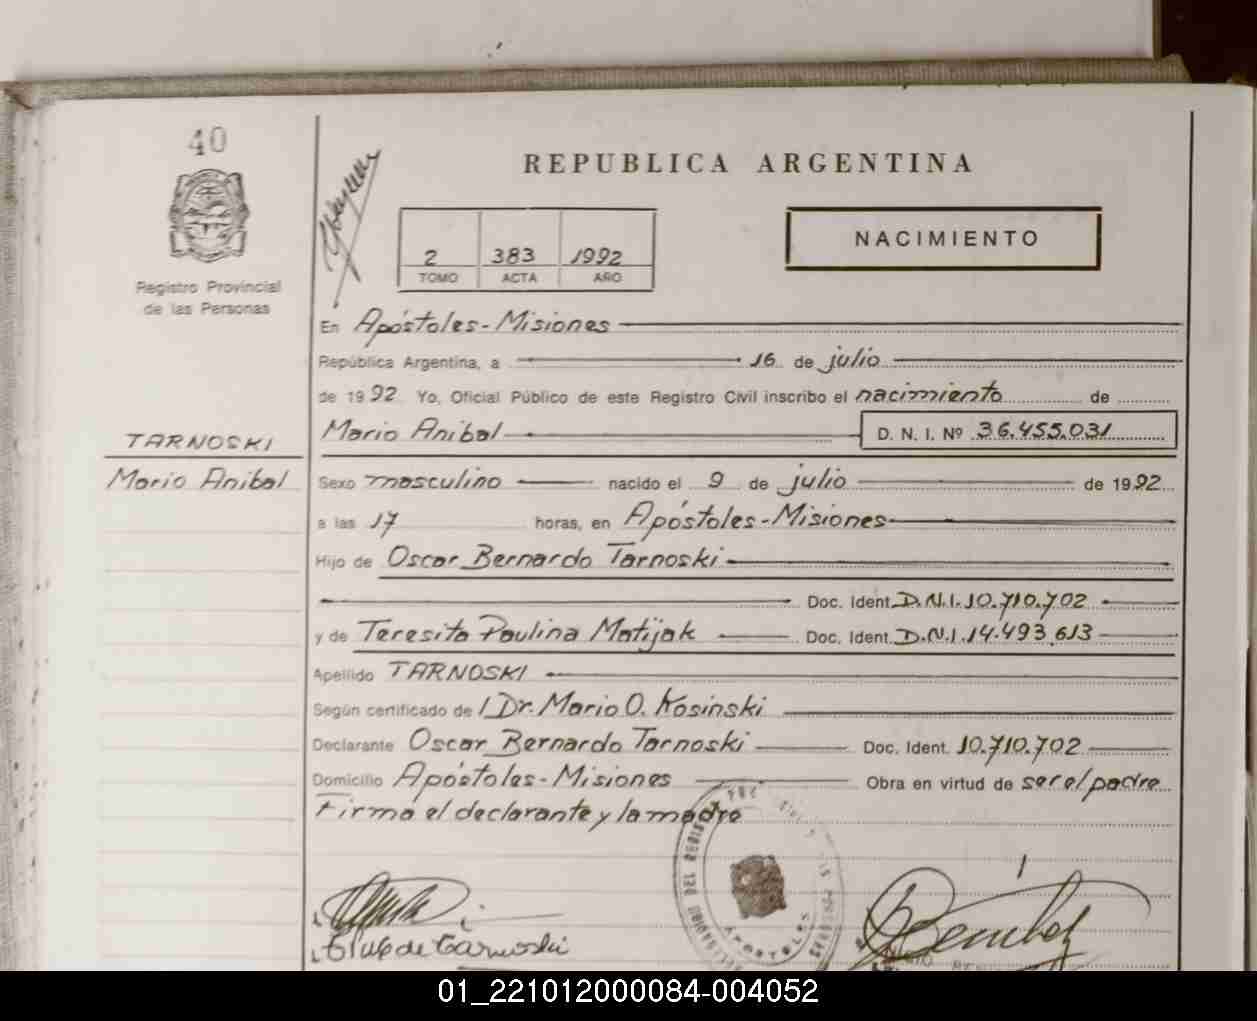 40
REPUBLICA ARGENTINA
NACIMIENTO
2 383 1992
TOMO ACTA AÑO
Registro Provincial
de las Personas
En Apóstoles-Misiones
República Argentina, a 16 de julio
de 1992 Yo, Oficial Público de este Registro Civil inscribo el nacimiento de
TARNOSKI
Mario Anibal
Mario Anibal D. N. I. Nº 36.455.031
Sexo masculino nacido el 9 de julio de 1992
a las 17 horas, en Apóstoles-Misiones
Hijo de Oscar Bernardo Tarnoski
Doc. Ident. D.N.I. 10.710.702
y de Teresita Paulina Matijak Doc. Ident. D.N.I. 14.493.613
Apellido TARNOSKI
Según certificado de / Dr. Mario O. Kosinski
Declarante Oscar Bernardo Tarnoski Doc. Ident. 10.710.702
Domicilio Apóstoles-Misiones Obra en virtud de ser el padre
Firma el declarante y la madre
APOSTOLES
de Tarnoski
01_221012000084-004052